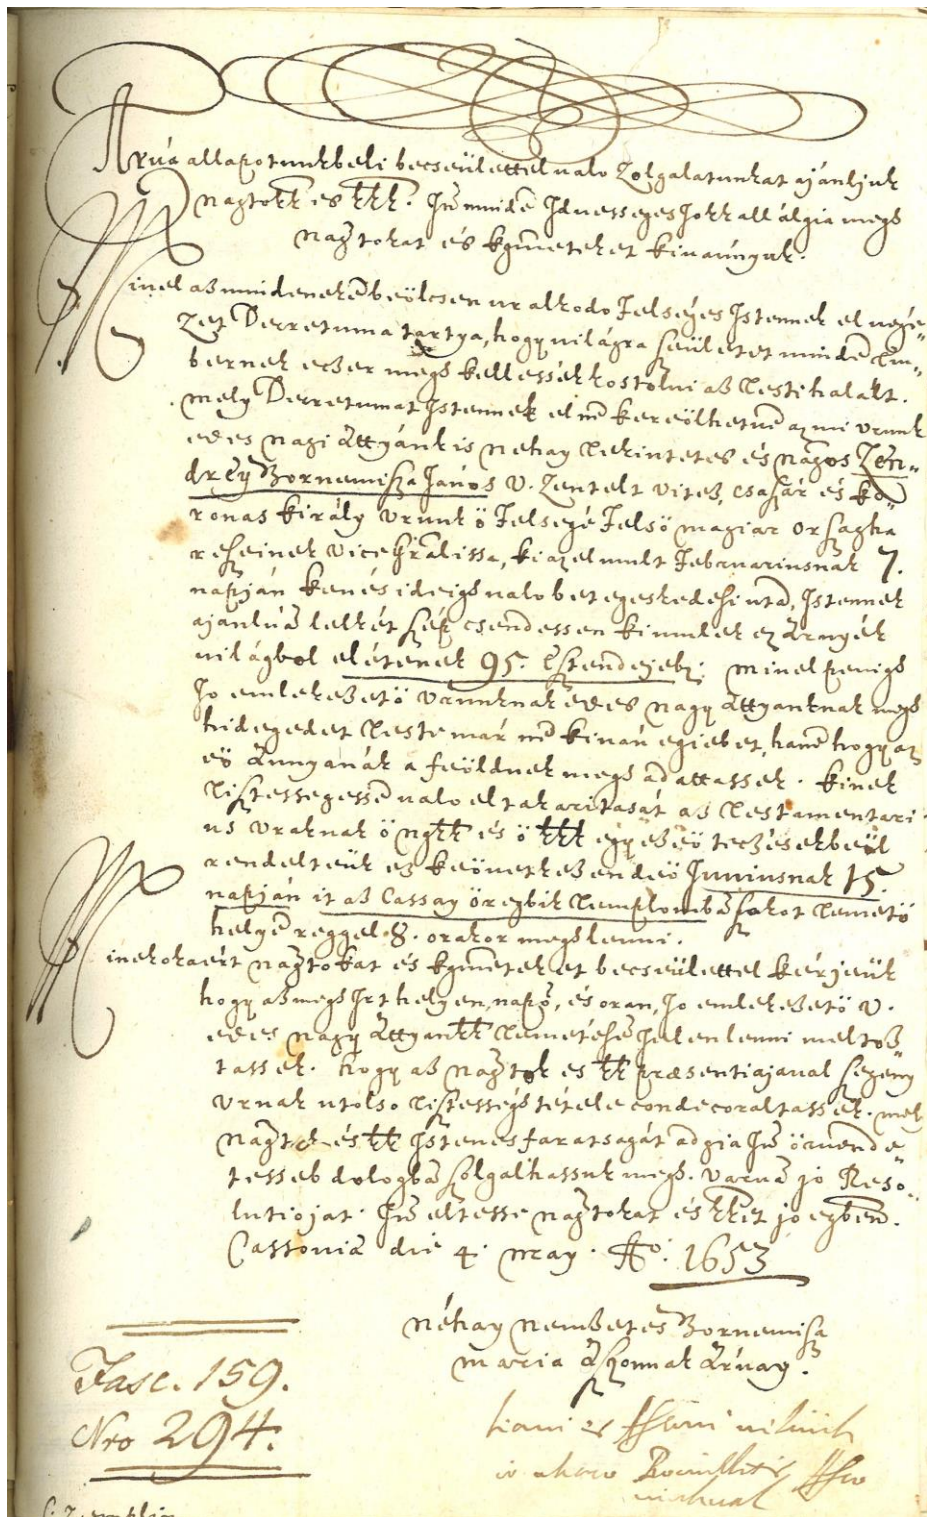 Arua allapotunkbeli becseülettel ualo Zolgalatunkat ajánljuk
Nagtokk es kkk. Isten minden Iduesseges Jokkall álgia megh
Nagtokat és kgmeteket kiuannyuk.
Minel az mindeneken beölcsen uralkodo Felséges Istennek el uége„
Zet Decretuma tartya, hogy uilágra szeületet minden Em„
bernek eczer megh kellessék kostolni az Testi halalt.
mely Decretumat Istennek el nem kereölhetuen az mi Vrunk
edes Nagi Attyánk is Nehay Tekintetes és Nagos Zen„
drey Bornemisza János V. Zentelt Vitez, Csaszár és Ko„
ronas Király Vrunk ö Felsege Felsö Magiar Orszagha
reszeinek Vice Gralissa, ki az el mult Februariusnak 7.
napján ken és ideigh ualo betegeskedesi utan, Istennek
ajanluan lelkét szép csendessen ki mulek ez Arnyék
uilágbol életének 95. Esztendejeben: Minel penigh
Jo emlekezetö Vrunknak edes Nagy Attyanknak megh
hidegedet Teste már nem kiuan egiebet, hanem hogy az
eö Annyanák a feöldnek megh adattassék. Kinek
Tisztessegessen ualo el takaritasát az Testamentari„
us Vraknak ö Ngkk és ö kkk egyezeö teczésekbeül
rendelteük ez keöuetkezendeö Juniusnak 15.
napján it az Cassay öregbik Templomban szokot Temetö
helyen reggel 8. orakor megh lenni.
Minekokaért Nagtokat és kgmeteket becseülettel kérjeük
hogy az megh Irt helyen, napon, és oran, Jo emlekezetö V.
edes Nagy Attyankk Temetésen Jelen lenni meltoz„
tassek. hogy az Nagtok es kk præsentiajaual szegeny
Vrnak utolso Tisztessegh tétele condecoraltassék. mely
Nagtok és kk Istenes faratsagát adgia Isten öruende„
tesseb dologban szolgalhassuk megh. Varuan jo Reso„
lutiojat. Isten eltesse Nagtokat és kket jo egben.
Cassouia die 4. May. Ao. 1653
Néhay Nemzetes Bornemisza
Maria Aszonnak Aruay.
Fasc. 159.
Nro 294.